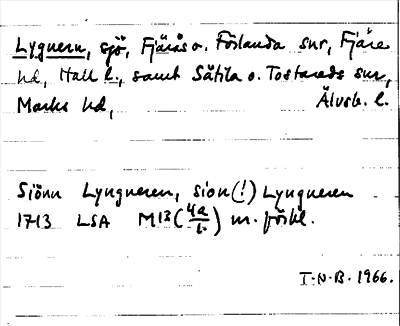 Lygnern, sjö, Fjärås o. Förlanda snr, Fjäre
hd, Hall l., samt Sätila o. Tostareds snr,
Marks hd, Älvsb. l.
Siönn Lyngneren, sion(!) Lyngneren
1713 LSA M13 (4a/b) m. förkl.
I.N.B. 1966.